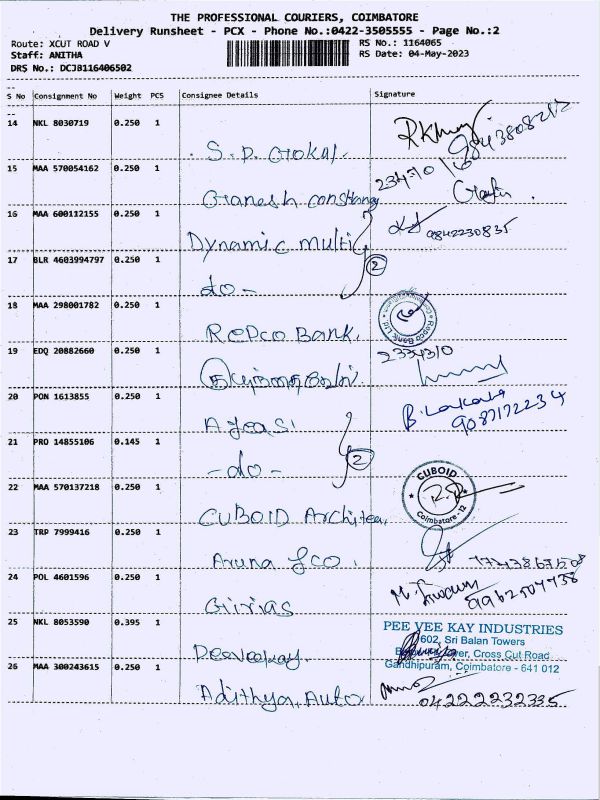 THE PROFESSIONAL COURIERS, COIMBATORE
Delivery Runsheet - PCX - Phone No.:0422-3505555 - Page No.:2
Route: XCUT ROAD V RS No.: 1164065
Staff: ANITHA RS Date: 04-May-2023
DRS No.: DCJB116406502
S No Consignment No Weight PCS Consignee Details Signature
14 NKL 8030719 0.250 1
S.P. Gokal.
15 MAA 570054162 0.250 1
Ganesh
16 MAA 600112155 0.250 1
9842230835
Dynamic Multi
17 BLR 4603994797 0.250 1
2
-do-
18 MAA 298001782 0.250 1
Repco Bank.
19 EDQ 20882660 0.250 1
2334310
20 PON 1613855 0.250 1
9087172234
21 PRO 14855106 0.145 1
-do- 2
22 MAA 570137218 0.250 1
CUBOID
Coimbatore - 12
CUBOID Architec
23 TRP 7999416 0.250 1
Aruna & co.
24 POL 4601596 0.250 1
Girias
25 NKL 8053590 0.395 1
PEE VEE KAY INDUSTRIES
602, Sri Balan Towers
Cross Cut Road
Gandhipuram, Coimbatore - 641 012
Peeveekay.
26 MAA 300243615 0.250 1
Adithya Auto 04222232335